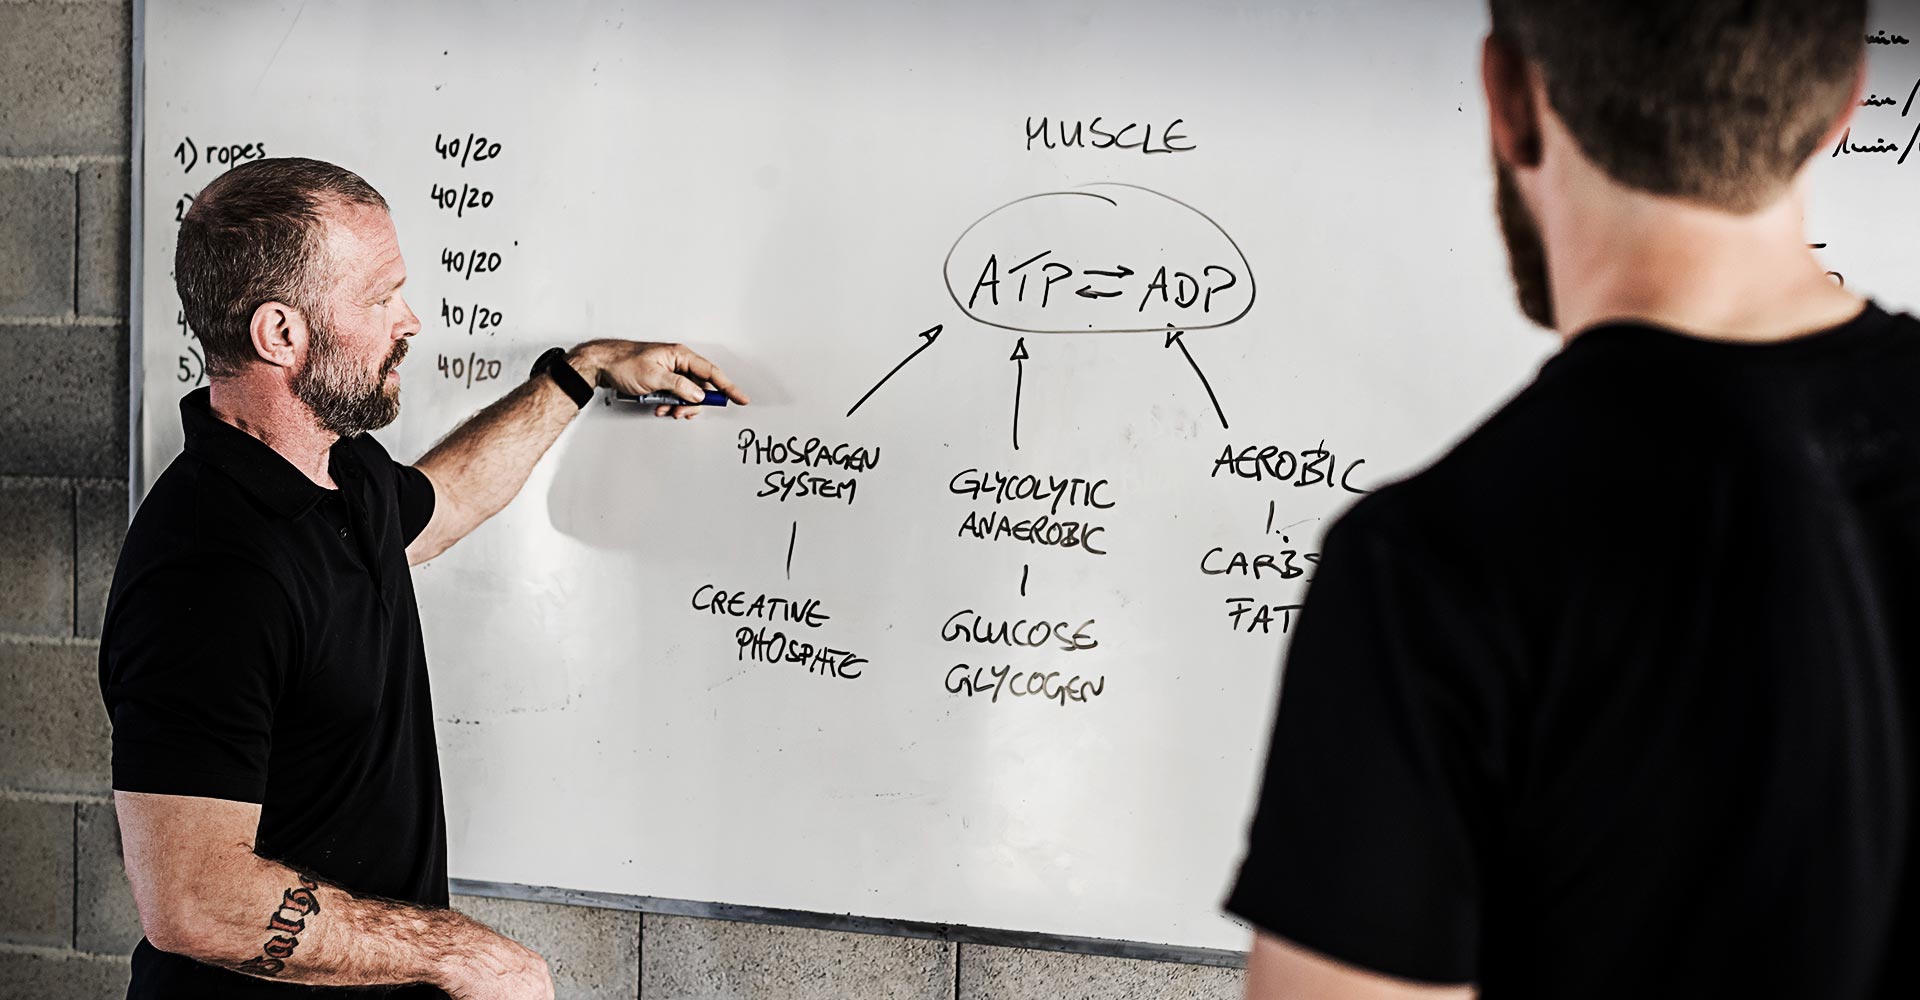 1) ropes 40/20
2) 40/20
40/20
4 40/20
5.) 40/20
MUSCLE
ATP ⇄ ADP
PHOSPAGEN
SYSTEM
CREATINE
PHOSPHTE
GLYCOLYTIC
ANAEROBIC
GLUCOSE
GLYCOGEN
AEROBIC
CARBS
FAT